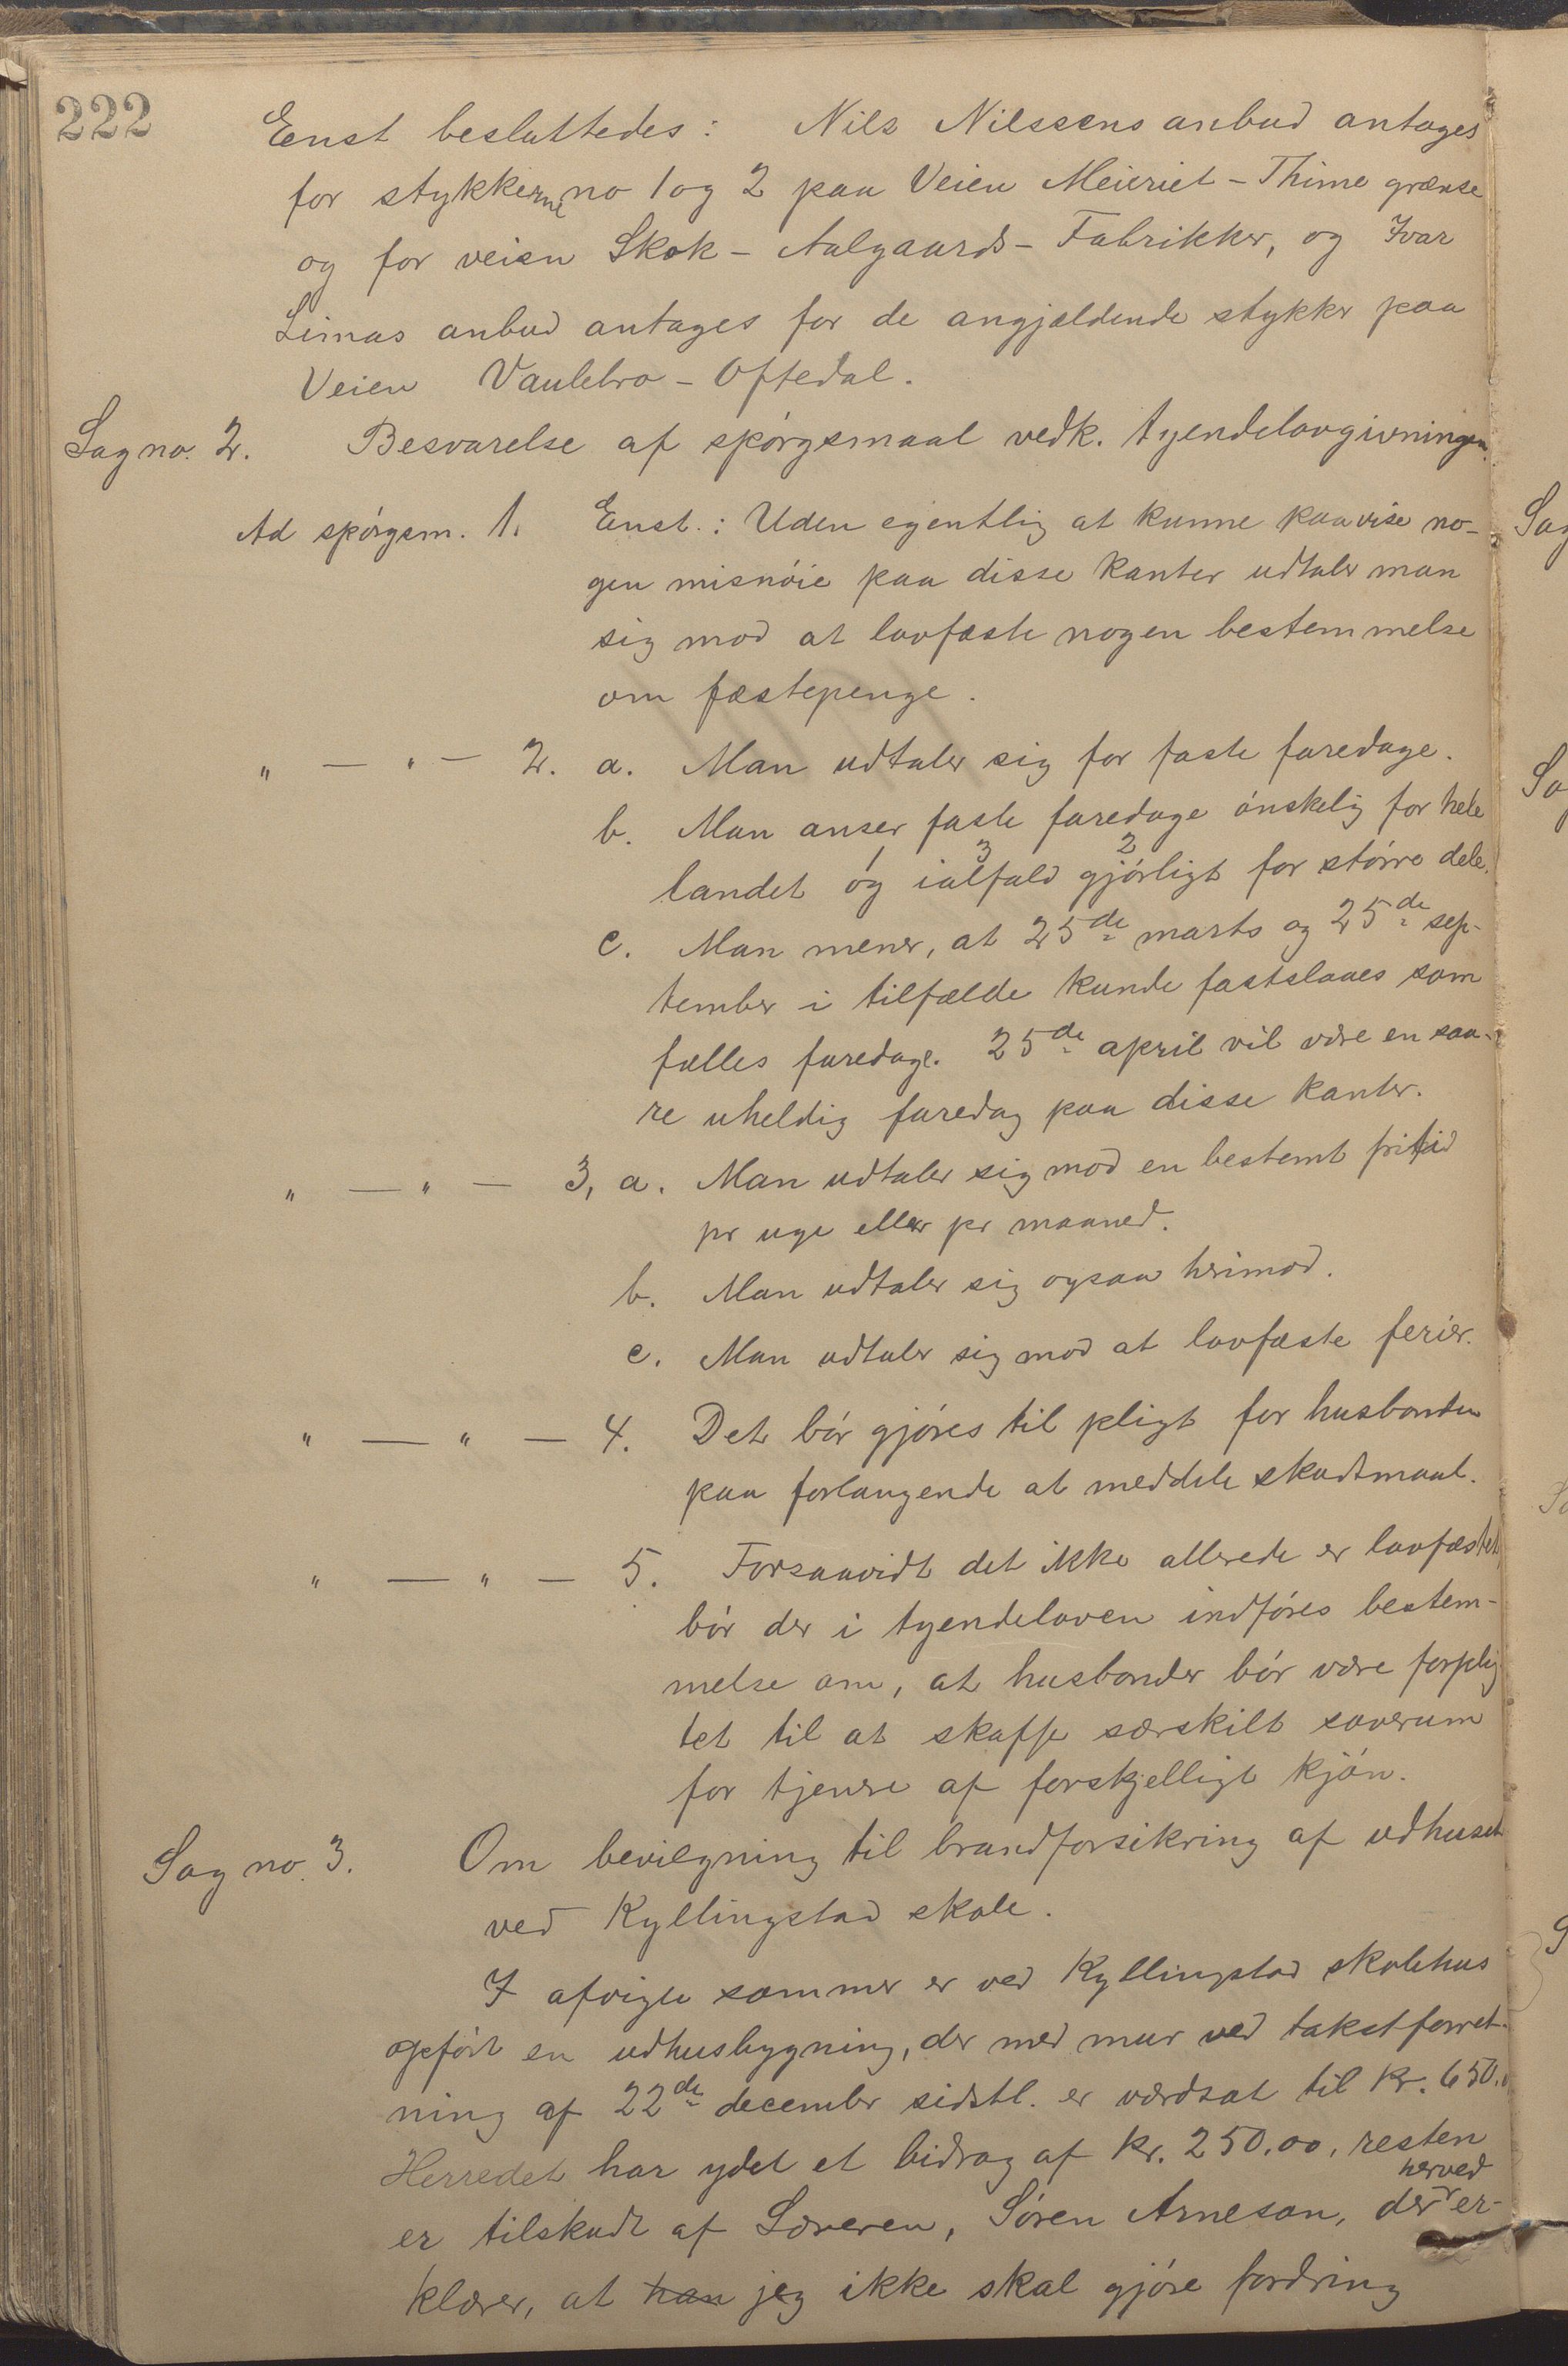 222
Enst besluttedes: Nils Nilssens anbud antages
for stykkerne no 1 og 2 paa Veien Meieriet - Thime grænse
og for veien Skok - Aalgaards - Fabrikker, og Ivar
Limas anbud antages for de angjældende stykker paa
Veien Vaulebro - Oftedal.
Sag no. 2. Besvarelse af spórgsmaal vedk. tyendelovgivningen.
Ad spórgsm. 1. Enst.: Uden egentlig at kunne paavise no-
gen misnóie paa disse kanter udtaler man
sig mod at lovfæste nogen bestemmelse
om fæstepenge.
" — " — 2. a. Man udtaler sig for faste faredage.
b. Man anser faste faredage ónskelig for hele
1 3 2
landet og ialfald gjórligt for stórre dele.
c. Man mener, at 25de marts og 25de sep-
tember i tilfælde kunde fastslaaes som
fælles faredage. 25de april vil være en saa-
re uheldig faredag paa disse kanter.
" — " — 3, a. Man udtaler sig mod en bestemt fritid
pr uge eller pr maaned.
b. Man udtaler sig ogsaa herimod.
c. Man udtaler sig mod at lovfæste ferier.
" — " — 4. Det bór gjóres til pligt for husbonden
paa forlangende at meddele skudsmaal.
" — " — 5. Forsaavidt det ikke allerede er lovfæstet,
bór der i tyendeloven indfóres bestem-
melse om, at husbonder bór være forplig
tet til at skaffe særskilt soverum
for tjenere af forskjelligt kjón.
Sag no. 3. Om bevilgning til brandforsikring af udhuset
ved Kyllingstad skole.
I afvigte sommer er ved Kyllingstad skolehus
opfórt en udhusbygning, der med mur ved takstforret-
ning af 22de december sidstl. er værdsat til Kr. 650.
Herredet har ydet et bidrag af Kr. 250.00, resten
er tilskudt af Læreren, Sóren Arneson, der herved er-
klærer, at han jeg ikke skal gjóre fordring